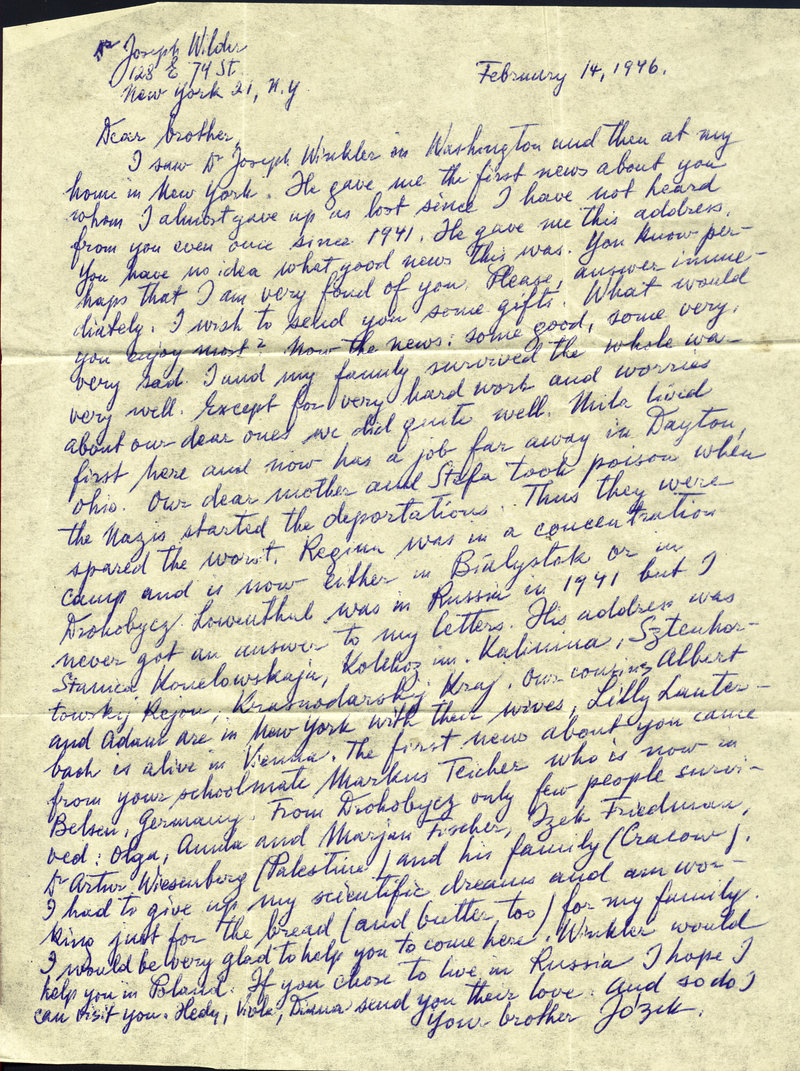 Dr Joseph Wilder
128 E 74 St.
New York 21, N.Y.
February 14, 1946.
Dear brother,
I saw Dr Joseph Winkler in Washington and then at my
home in New York. He gave me the first news about you
whom I almost gave up as lost since I have not heard
from you even once since 1941. He gave me this address.
You have no idea what good news this was. You know per-
haps that I am very fond of you. Please, answer imme-
diately. I wish to send you some gifts. What would
you enjoy most? Now the news: some good, some very,
very sad. I and my family survived the whole wa-
very well. Except for very hard work and worries
about our dear ones we did quite well. Mila lived
first here and now has a job far away in Dayton,
Ohio. Our dear mother and Stefa took poison when
the Nazis started the deportations. Thus they were
spared the worst. Regina was in a concentration
camp and is now either in Bialystok or in
Drohobycz. Lowenthal was in Russia in 1941 but I
never got an answer to my letters. His address was
Stanica Konelowskaja, Kolchoz im. Kalinina, Sztenhor-
towskj Rejon, Krasnodarskj Kraj. Our cousins Albert
and Adam are in New York with their wives, Lilly Lauter-
bach is alive in Vienna. The first news about you came
from your schoolmate Markus Teicher who is now in
Belsen, Germany. From Drohobycz only few people survi-
ved: Olga, Anda and Marjan Fischer, Izek Friedman,
Dr Artur Wiesenberg (Palestine) and his family (Cracow).
I had to give up my scientific dreams and am wor-
king just for the bread (and butter, too) for my family.
I would be very glad to help you to come here. Winkler would
help you in Poland. If you chose to live in Russia I hope I
can visit you. Hedy, Viola, Diana send you their love. And so do I
Your brother Józek.